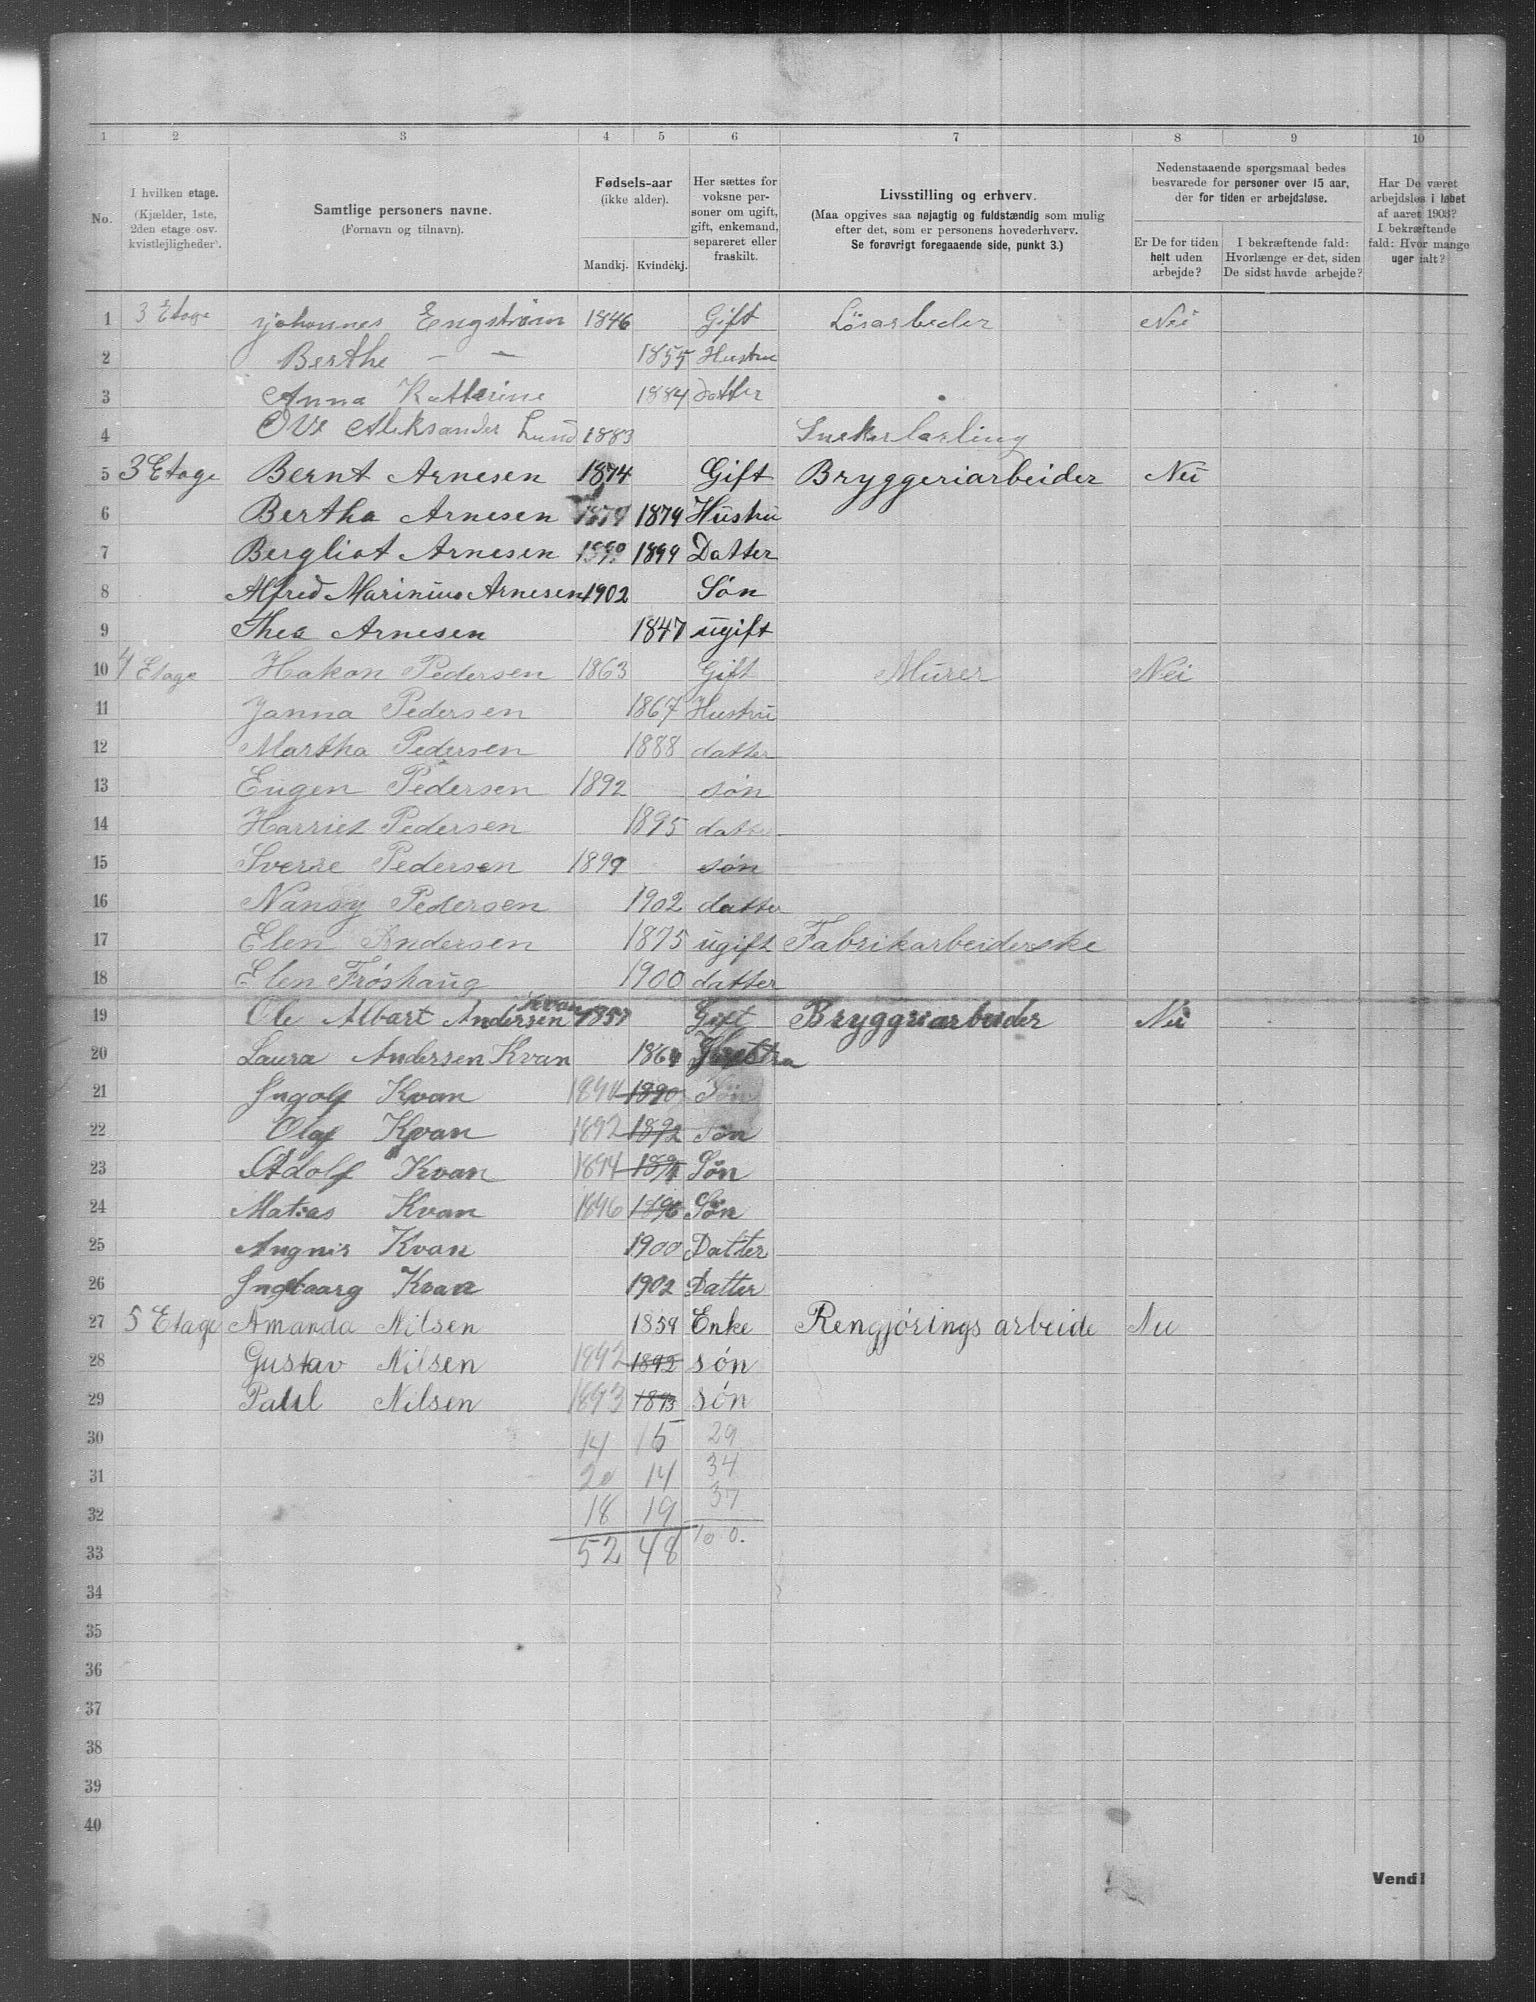 1 2 3 4 5 6 7 8 9 10
No.
I hvilken etage.
(Kjælder, 1ste,
2den etage osv.
kvistlejligheder).
Samtlige personers navne.
(Fornavn og tilnavn).
Fødsels-aar
(ikke alder).
Mandkj. Kvindekj.
Her sættes for
voksne per-
soner om ugift,
gift, enkemand,
separeret eller
fraskilt.
Livsstilling og erhverv.
(Maa opgives saa nøjagtig og fuldstændig som mulig
efter det, som er personens hovederhverv.
Se forøvrigt foregaaende side, punkt 3.)
Nedenstaaende spørgsmaal bedes
besvarede for personer over 15 aar,
der for tiden er arbejdsløse.
Er De for tiden
helt uden
arbejde?
I bekræftende fald:
Hvorlænge er det, siden
De sidst havde arbejde?
Har De været
arbejdsløs i løbet
af aaret 1903?
I bekræftende
fald: Hvor mange
uger ialt?
1 3 Etage Johannes Engstrøm 1846 Gift Løsarbeder Nei
2 Berthe – – 1855 Hustru
3 Anna Katterine 1884 datter
4 Ove Aleksander Lund 1883 Snekerlærling
5 3 Etage Bernt Arnesen 1874 Gift Bryggeriarbeider Nei
6 Bertha Arnesen 1879 1879 Hustru
7 Bergliot Arnesen 1899 1899 Datter
8 Alfred Marinius Arnesen 1902 Søn
9 Thea Arnesen 1847 ugift
10 4 Etage Hakon Pedersen 1863 Gift Murer Nei
11 Janna Pedersen 1867 Hustru
12 Martha Pedersen 1888 datter
13 Eugen Pedersen 1892 søn
14 Harriet Pedersen 1895 datter
15 Sverre Pedersen 1899 søn
16 Nansy Pedersen 1902 datter
17 Elen Andersen 1875 ugift Fabrikarbeiderske
18 Elen Frøshaug 1900 datter
19 Ole Albart Andersen Kvan 1857 Gift Bryggriarbeider Nei
20 Laura Andersen Kvan 1864
21 Ingolf Kvan 1890 Søn
22 Olaf Kvan 1892 1892 Søn
23 Adolf Kvan 1894 1894 Søn
24 Matias Kvan 1896 1896 Søn
25 Angnis Kvan 1900 Datter
26 Ingebaarg Kvan 1902 Datter
27 5 Etage Amanda Nilsen 1859 Enke Rengjørings arbeide Nei
28 Gustav Nilsen 1892 1892 søn
29 Paul Nilsen 1893 1893 søn
30 14 15 29
31 20 14 34
32 18 19 37
33 52 48 100.
34
35
36
37
38
39
40
Vend!